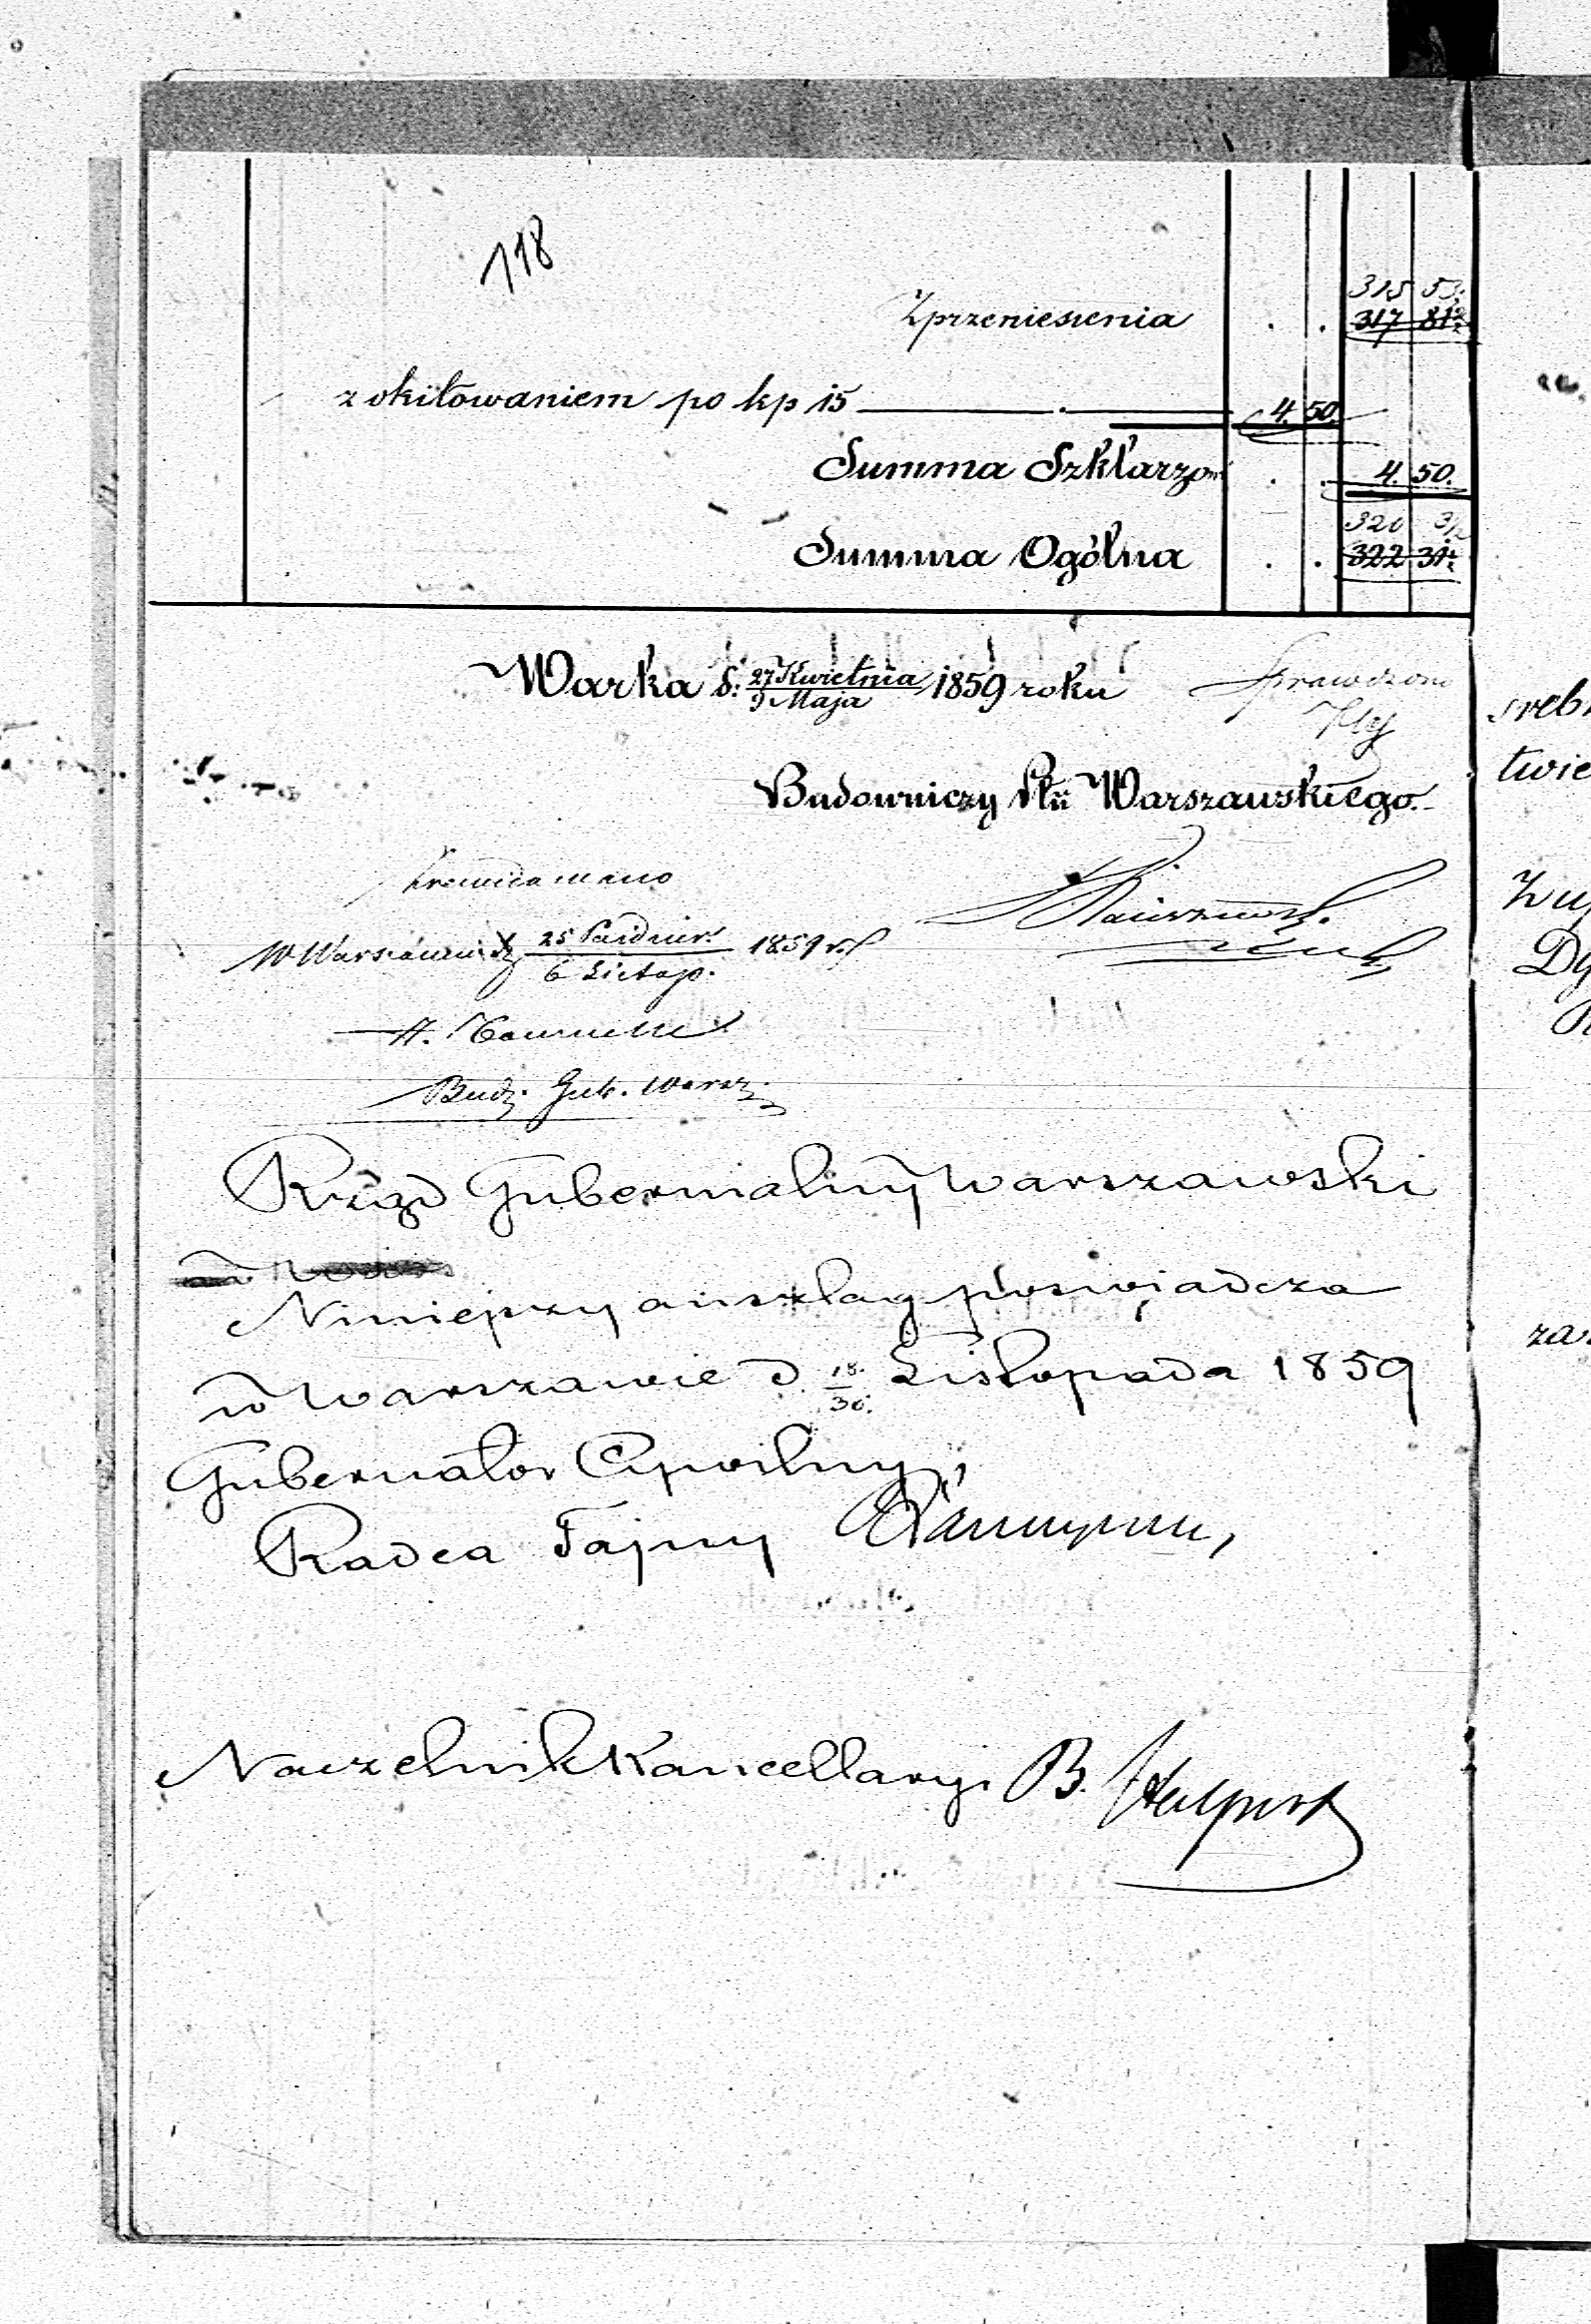 118
315 53
Zprzeniesienia . . 317 81½
z okitowaniem po kp 15 4. 50.
Summa Szklarzom . . 4. 50.
320 3½
Summa Ogólna . . 322 31½
Warka d: 27 Kwietnia / 9 Maja 1859 roku
Sprawdzono
Budowniczy Ptu Warszawskiego.
Zrewidowano
w Warszawie d 25 Paidzier. / 6 Listop. 1859 r.
Bud. Gub. Warsz.
Rząd Gubernialny Warszawski
Niniejszy anszlag poswiadcza
w Warszawie d. 18. / 30. Listopada 1859
Gubernator Cywilny,
Radca Tajny
Naczelnik Kancellaryi B. Halpert
srebr
twie
Zup
Dy
zar